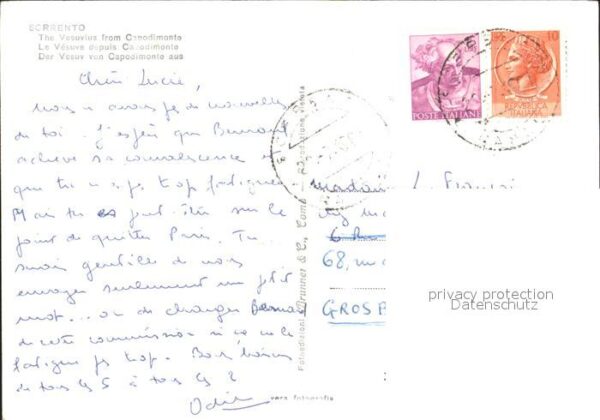 SORRENTO
The Vesuvius from Capodimonte
Le Vésuve depuis Capodimonte
Der Vesuv von Capodimonte aus
Chère Lucie,
Nous n'avons pas de nouvelles
de toi. J'espère que Bernard
achève sa convalescence et
que tu n'es pas trop fatiguée
Mais tu es peut-être sur le
point de quitter Paris. Tu
serais gentille de nous
envoyer seulement un petit
mot... ou de charger Bernard
de cette commission si cela te
fatigue pas trop. Bons baisers
de tous les 5 à tous les 2
Odile
POSTE ITALIANE
10
REPVBBLICA
ITALIANA
Fotoedizioni Brunner & C., Como - Riproduzione vietata
vera fotografia
Madame L.
68,
GROS
privacy protection
Datenschutz